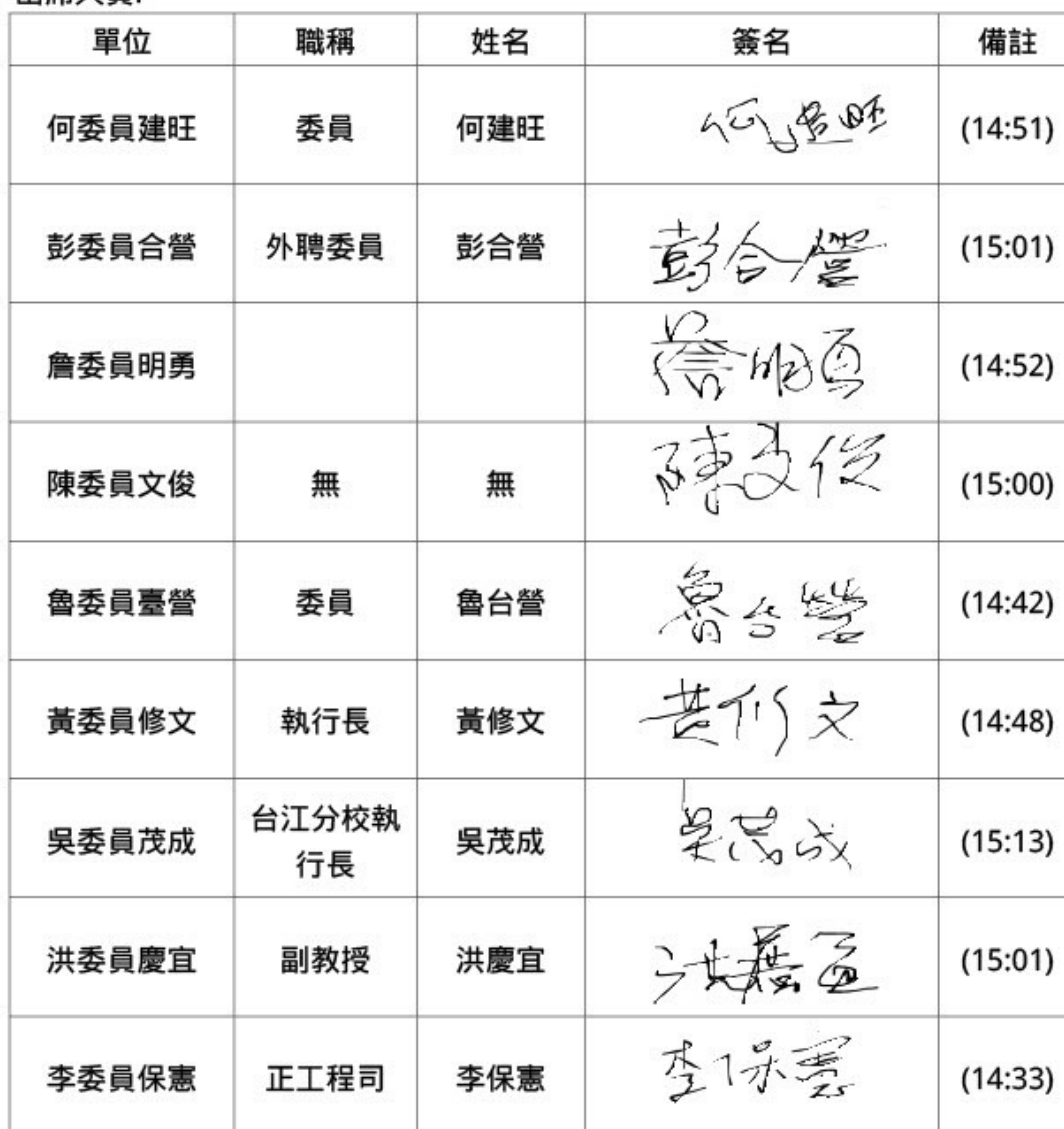 出席人員:
單位 職稱 姓名 簽名 備註
何委員建旺 委員 何建旺 何建旺 (14:51)
彭委員合營 外聘委員 彭合營 彭合營 (15:01)
詹委員明勇 詹明勇 (14:52)
陳委員文俊 無 無 陳文俊 (15:00)
魯委員臺營 委員 魯台營 魯台營 (14:42)
黃委員修文 執行長 黃修文 黃修文 (14:48)
吳委員茂成 台江分校執 吳茂成 吳茂成 (15:13)
行長
洪委員慶宜 副教授 洪慶宜 洪慶宜 (15:01)
李委員保憲 正工程司 李保憲 李保憲 (14:33)